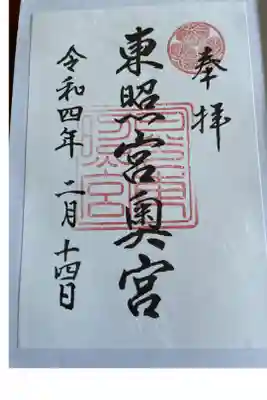 奉拝
東照宮奥宮
令和四年 二月 十四日